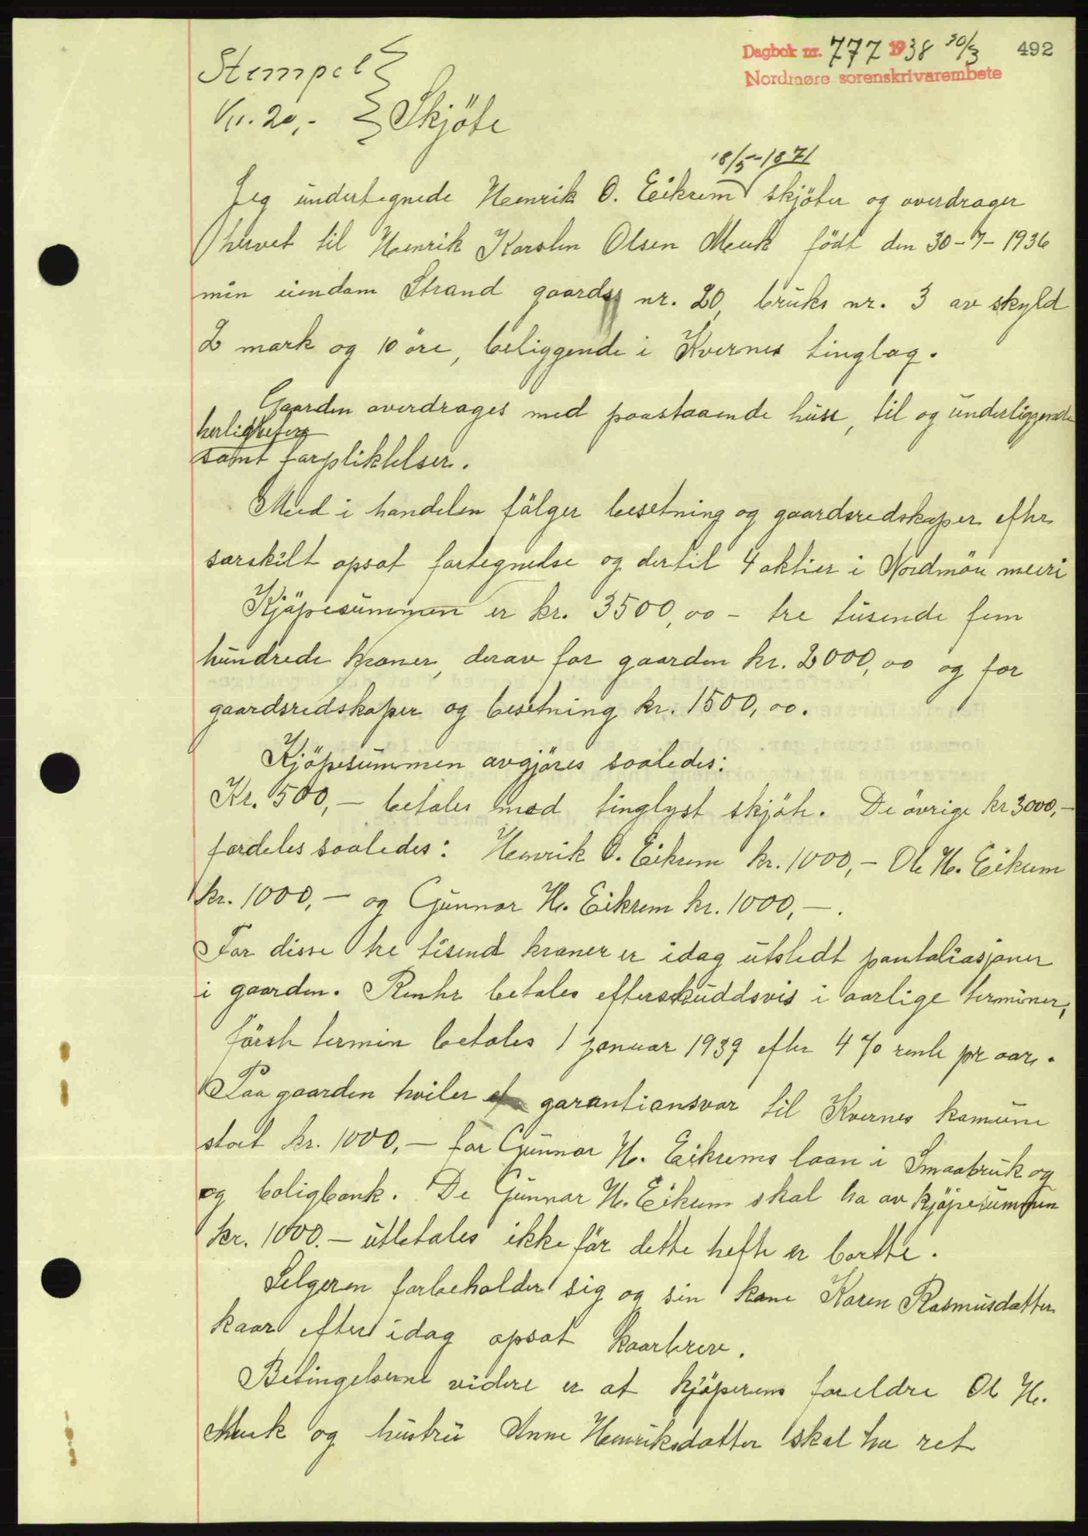 Dagbok nr. 777 1938 30/3 492
Nordmøre sorenskrivarembete
Stempel
Kr. 20,- Skjöte
18/5-1871
Jeg undertegnede Henrik O. Eikrem skjöter og overdrager
herved til Henrik Karsten Olsen Meek född den 30-7-1936
min eiendom Strand gaards nr. 20, bruks nr. 3 av skyld
2 mark og 10 öre, beliggende i Kvernes tinglag.
Gaarden overdrages med paastaaende huse, til og underliggende
herligheter
samt forpliktelser.
Med i handelen fölger besetning og gaardsredskaper efter
særskilt opsat fortegnelse og dertil 4 aktier i Nordmöre meieri
Kjöpesummen er kr. 3500,00 - tre tusende fem
hundrede kroner, derav for gaarden kr. 2000,00 og for
gaardsredskaper og besetning kr. 1500,00.
Kjöpesummen avgjöres saaledes:
Kr. 500,- betales med tinglyst skjöte. De övrige kr 3000,-
fordeles saaledes: Henrik O. Eikrem kr. 1000,- Ole H. Eikrem
kr. 1000,- og Gunnar H. Eikrem kr. 1000,-.
For disse tre tusend kroner er idag utstedt pantobliasjoner
i gaarden. Renter betales efterskuddsvis i aarlige terminer,
förste termin betales 1 januar 1939 efter 4 % rente pr aar.
Paa gaarden hviler garantiansvar til Kvernes komune
stort kr. 1000,- for Gunnar H. Eikrems laan i Smaabruk og
og boligbank. De Gunnar H. Eikrem skal ha av kjöpesummen
kr. 1000.- utbetales ikke för dette hefte er bortte.
Selgeren forbeholder sig og sin kone Karen Rasmusdatter
kaar efter idag opsat kaarbrev.
Betingelserne videre er at kjöperens foreldre Ole H.
Meek og hustru Anne Henriksdatter skal ha ret